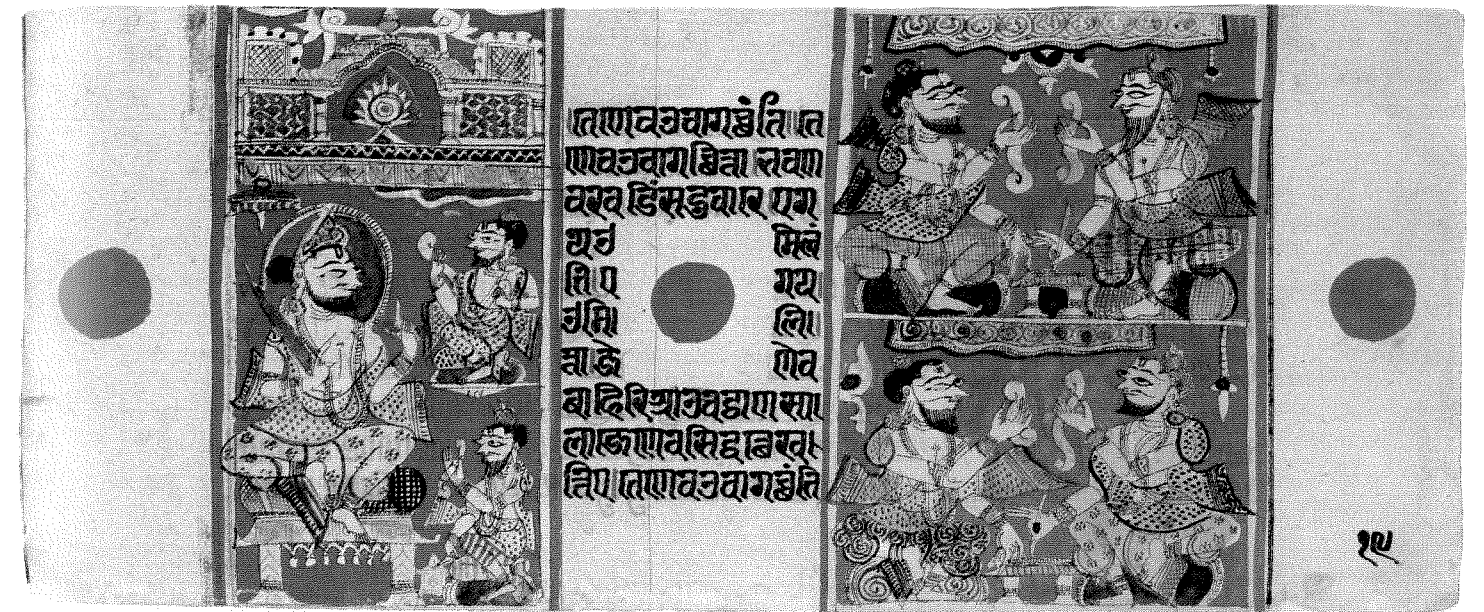 तेणेवउवागछंति॥ते
णेवउवागछित्ता।भवण
वरवडिंसदुवारे एग
यउ मिलं
ति।ए गय
उमि लि
त्ता जे णेव
बाहिरिआउवट्ठाणसा
लाजेणेवसिद्धत्थेख
त्तिए तेणेवउवागछंति